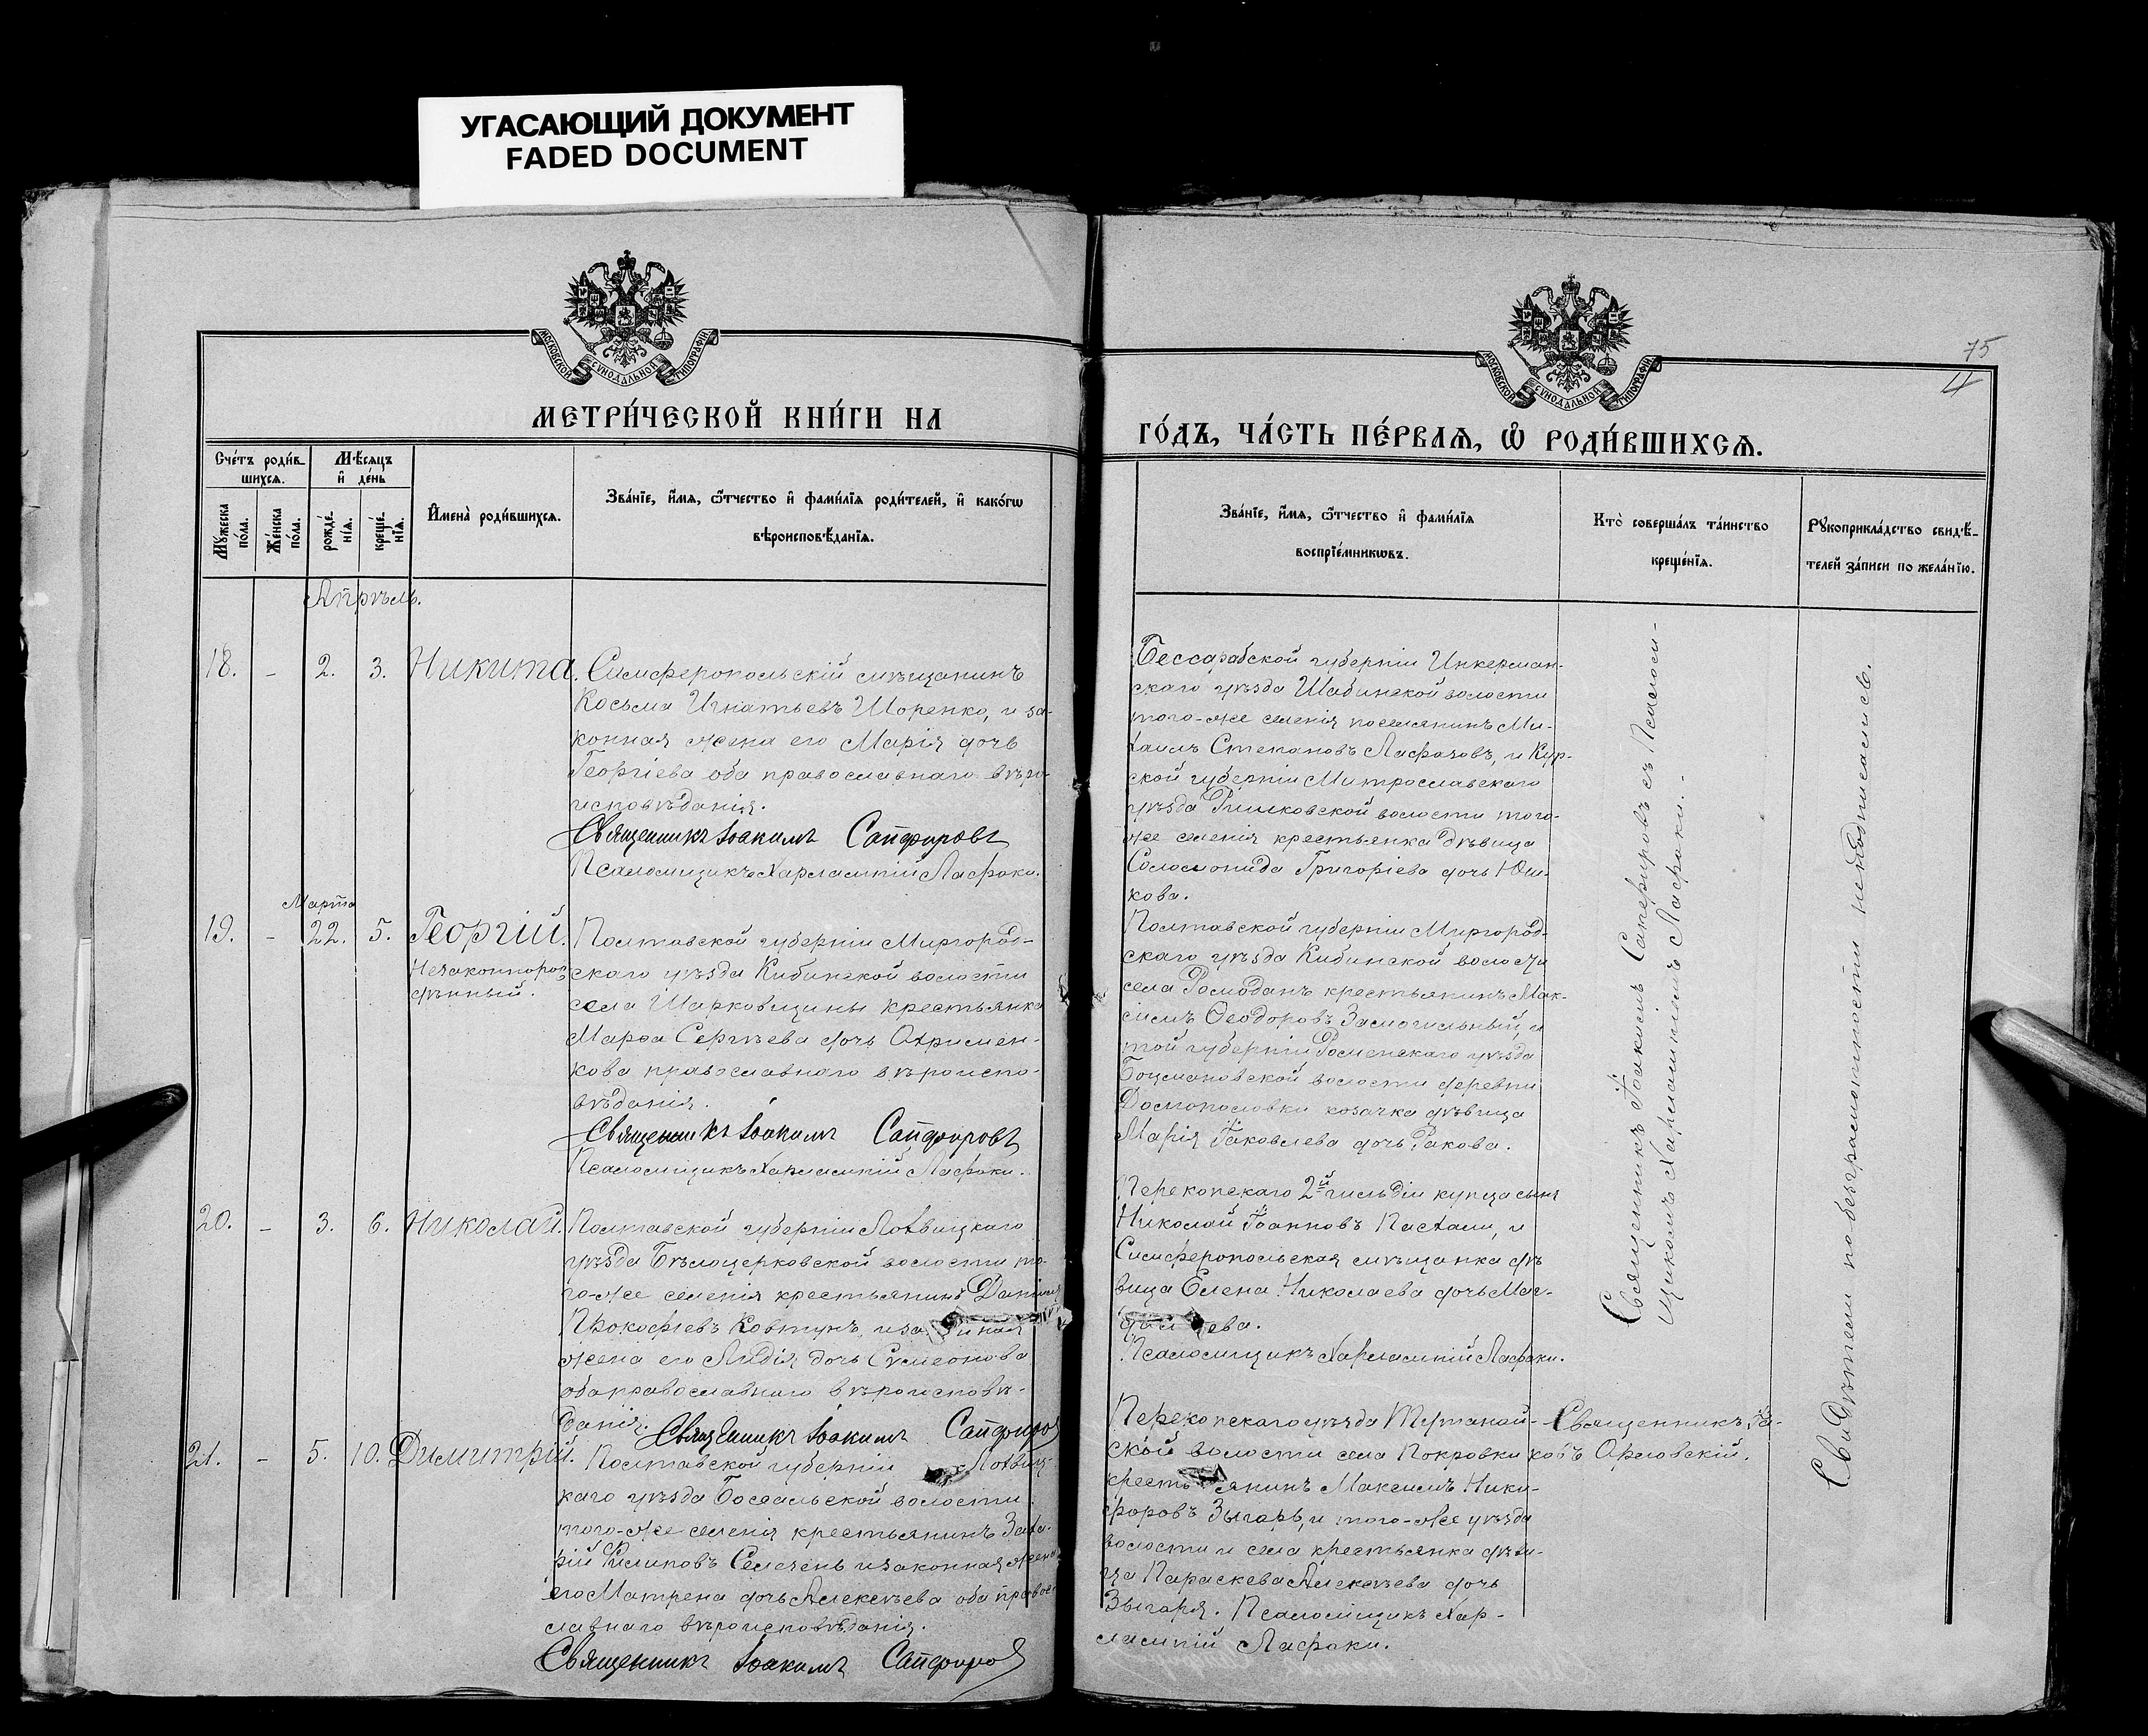 УГАСАЮЩИЙ ДОКУМЕНТ
FADED DOCUMENT
МОСКОВСКОЙ СѴНОДАЛЬНОЙ ТИПОГРАФІИ
МЕТРИ́ЧЕСКОЙ КНИ́ГИ НА
Сче́тъ роди́в-
шихсѧ.
Мѣ́сѧцъ
и҆ де́нь
Мꙋ́жеска
по́ла.
Же́нска
по́ла.
рожде́-
нїѧ.
креще́-
нїѧ.
И҆мена̀ роди́вшихсѧ.
Зва́нїе, и҆́мѧ, ѻ҆́тчество и҆ фами́лїѧ роди́телей, и҆ како́гѡ
вѣроисповѣ́данїѧ.
Апрѣль.
18. - 2. 3. Никита.
Симферопольскій мѣщанинъ
Косьма Игнатьевъ Шоренко, и за-
конная жена его Марія дочь
Георгіева оба православнаго вѣро-
исповѣданія.
Священникъ Іоакимъ Сапфировъ
Псаломщикъ Харлампій Лафаки.
Марта
19. - 22. 5. Георгій.
Незаконнорож-
дѣнный.
Полтавской губерніи Миргород-
скаго уѣзда Кибинской волости
села Шарковщины крестьянка
Марѳа Сергѣева дочь Охримен-
кова православнаго вѣроиспо-
вѣданія.
Священникъ Іоакимъ Сапфировъ
Псаломщикъ Харлампій Лафаки.
20. - 3. 6. Николай.
Полтавской губерніи Лохвицкаго
уѣзда Бѣлоцерковской волости то-
го-же селенія крестьянинъ Даніилъ
Прокофіевъ Ковтунъ, и за ная
жена его Лидія дочь Симеонова
оба православнаго вѣроисповѣ-
данія. Священникъ Іоакимъ Сапфировъ
21. - 5. 10. Димитрій.
Полтавской губерніи Лохвиц-
каго уѣзда волости
того-же селенія крестьянинъ Заха-
рій Филиповъ Семечень и законная жена
его Матрена дочь Алексѣева оба право-
славнаго вѣроисповѣданія.
Священникъ Іоакимъ Сапфировъ
75
4
МОСКОВСКОЙ СѴНОДАЛЬНОЙ ТИПОГРАФІИ
ГО́ДЪ, ЧА́СТЬ ПЕ́РВАѦ, Ѡ҆ РОДИ́ВШИХСѦ.
Зва́нїе, и҆́мѧ, ѻ҆́тчество и҆ фами́лїѧ
воспрїе́мникѡвъ.
Кто̀ соверша́лъ та́инство
креще́нїѧ.
Рꙋкоприкла́дство свидѣ́-
телей за́писи по жела́нїю.
Бессарабской губерніи Инкерман-
скаго уѣзда Шабинской волости
того-же селенія поселянинъ Ми-
хаилъ Степановъ и Кур-
ской губерніи Митрославскаго
уѣзда волости того-
же селенія крестьянка дѣвица
Соломонида Григоріева дочь Юш-
кова.
Полтавской губерніи Миргород-
скаго уѣзда Кибинской волости
села Ромоданъ крестьянинъ Мак-
симъ Ѳеодоровъ Замогильный, и
той губерніи Роменскаго уѣзда
волости деревни
Долгополовки козачка дѣвица
Марія Іаковлева дочь Ракова.
Перекопскаго 2й гильдіи купца сынъ
Николай Іоанновъ Пасхали, и
Симферопольская мѣщанка дѣ-
вица Елена Николаева дочь Маг-
ева.
Псаломщикъ Харлампій Лафаки.
Перекопскаго уѣзда
ской волости села Покровки
крестьянинъ Максимъ Ники-
форовъ Зыгарь, и того-же уѣзда
волости и села крестьянка дѣви-
ца Параскева Алексѣева дочь
Зыгаря. Псаломщикъ Хар-
лампій Лафаки.
Священникъ Іоакимъ Сапфировъ съ Псалом-
щикомъ Харлампіемъ Лафаки.
Священникъ Іа-
ковъ Орловскій.
Свидѣтели по безграмотности неподписались.